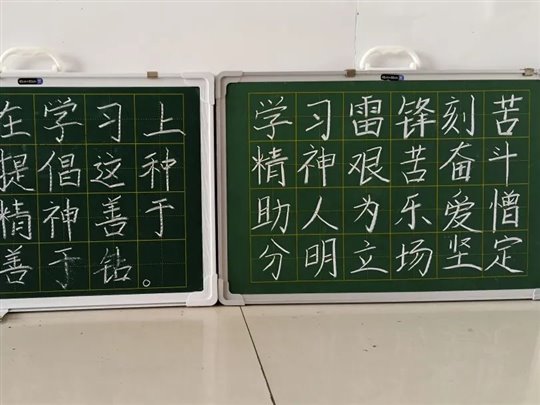 在学习上
提倡这种
精神善于
善于钻。
学习雷锋刻苦
精神艰苦奋斗
助人为乐爱憎
分明立场坚定